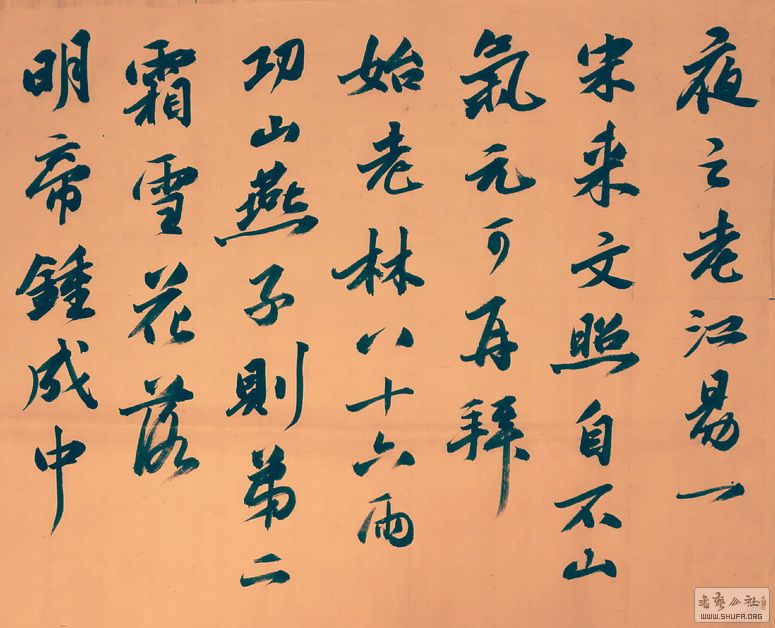 夜之老江易一
宋来文照自不山
氣元可再拜
始老林八十六雨
功山燕子則弟二
霜雪花落
明帝鍾成中
書藝公社
WWW.SHUFA.ORG